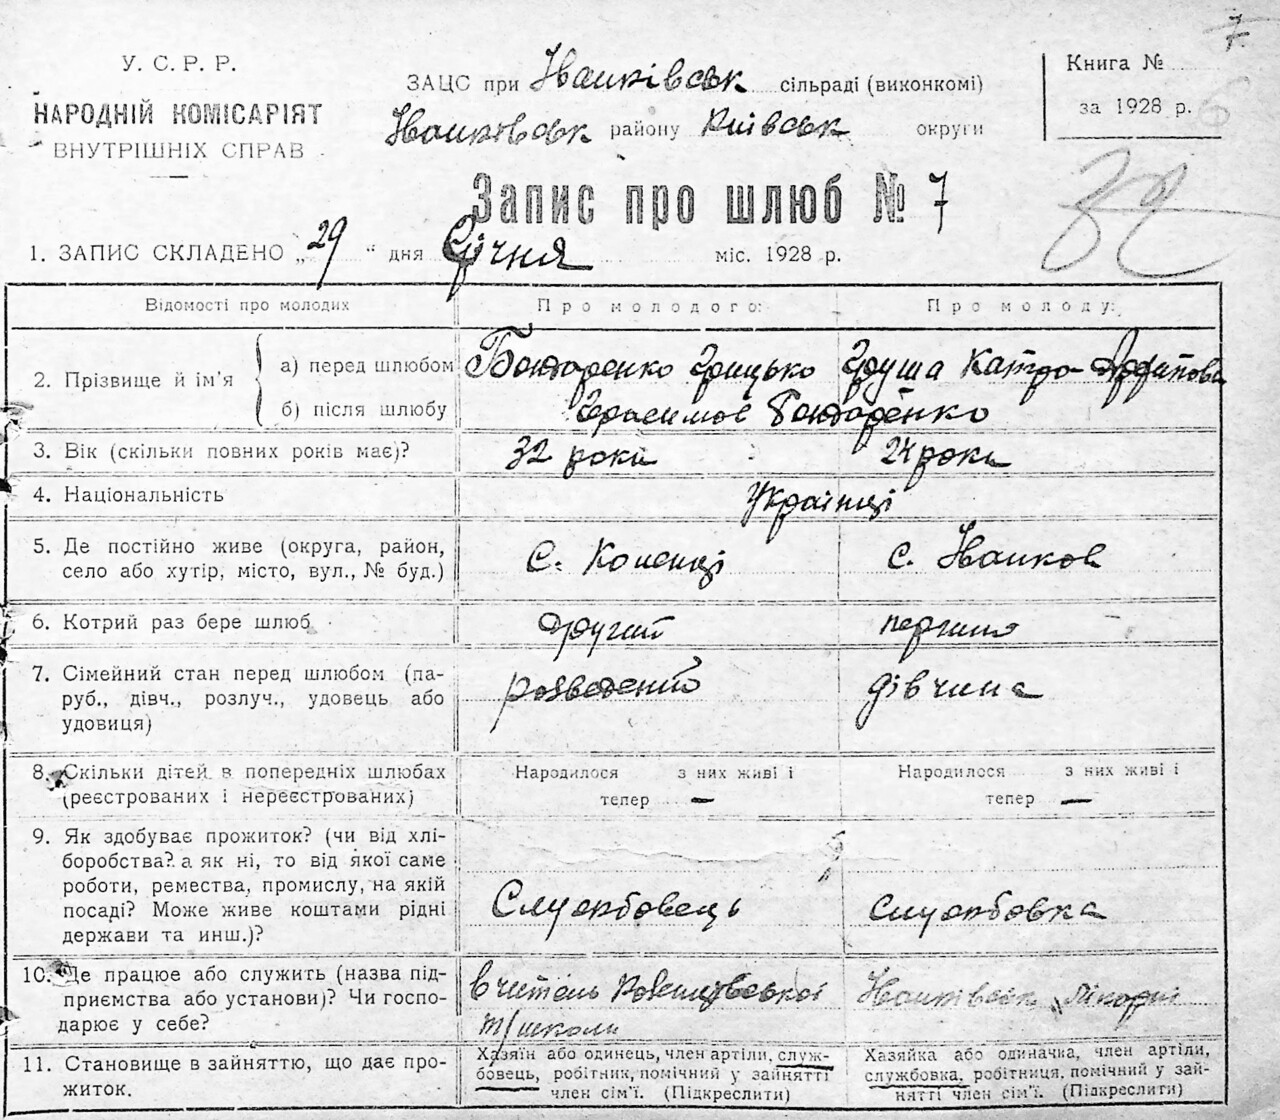 7.
У. С. Р. Р.
НАРОДНІЙ КОМІСАРІЯТ
ВНУТРІШНІХ СПРАВ
ЗАЦС при Іванківськ сільраді (виконкомі)
Іванківськ району Київськ округи
Книга №
за 1928 р.
Запис про шлюб № 7
1. ЗАПИС СКЛАДЕНО „29“ дня Січня міс. 1928 р.
Відомості про молодих Про молодого: Про молоду:
2. Прізвище й ім'я
а) перед шлюбом Бондаренко Грицько Груша Катря
б) після шлюбу Герасимов Бондаренко
3. Вік (скільки повних років має)? 32 роки 24 роки
4. Національність Українці
5. Де постійно живе (округа, район,
село або хутір, місто, вул., № буд.) С. с. Іванков
6. Котрий раз бере шлюб другий
7. Сімейний стан перед шлюбом (па-
руб., дівч., розлуч., удовець або
удовиця)
розведений дівчина
8. Скільки дітей в попередніх шлюбах
(реєстрованих і нереєстрованих)
Народилося з них живі і
тепер —
Народилося з них живі і
тепер —
9. Як здобуває прожиток? (чи від хлі-
боробства? а як ні, то від якої саме
роботи, ремества, промислу, на якій
посаді? Може живе коштами рідні
держави та инш.)?
Службовець службовка
10. Де працює або служить (назва під-
приємства або установи)? Чи госпо-
дарює у себе?
вчитель
т/школи
Іванківськ лікарні
11. Становище в зайняттю, що дає про-
житок.
Хазяїн або одинець, член артіли, служ-
бовець, робітник, помічний у зайнятті
член сім'ї. (Підкреслити)
Хазяйка або одиначка, член артіли,
службовка, робітниця, помічний у зай-
нятті член сім'ї. (Підкреслити)